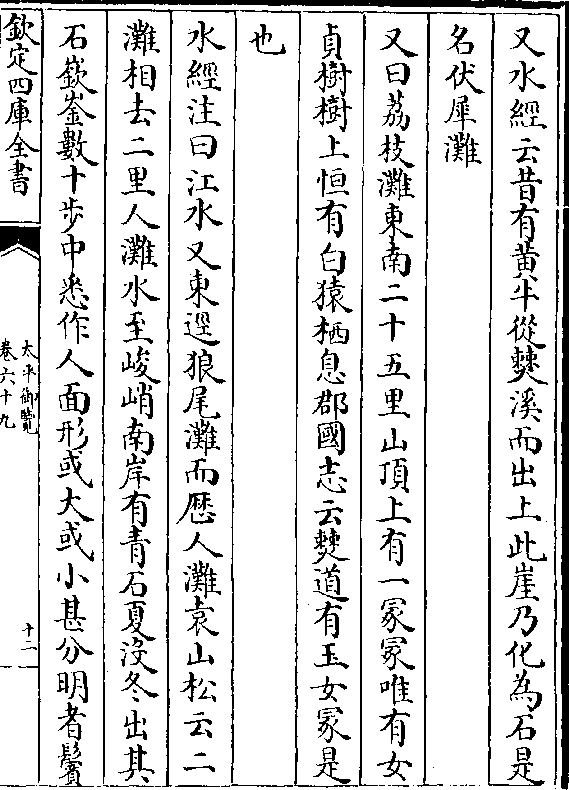 又水經云昔有黄牛從僰溪而出上此崖乃化為石是
名伏犀灘
又曰荔枝灘東南二十五里山頂上有一冢冢唯有女
貞樹樹上恒有白猿栖息郡國志云僰道有玉女冢是
也
水經注曰江水又東逕狼尾灘而歴人灘袁山松云二
灘相去二里人灘水至峻峭南岸有青石夏沒冬出其
石嶔崟數十步中悉作人面形或大或小甚分明者鬚
欽定四庫全書
太平御覽
卷六十九
十二